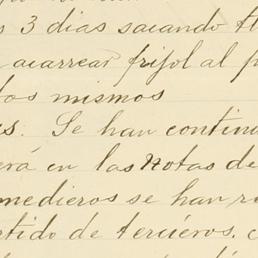 s 3 dias sacando
acarrear frijol al p
los mismos
s. Se han contin
erá en las Notas de
medieros se han r
rtido de terceros, c